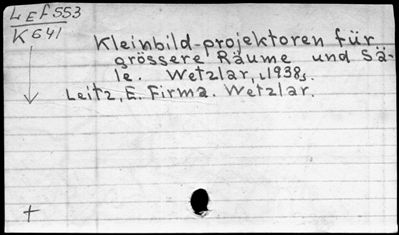 LEf 553
K 641
Kleinbild-projektoren für
grössere Räume und Sä-
le. Wetzlar, [1938].
Leitz, E. Firma. Wetzlar.
+